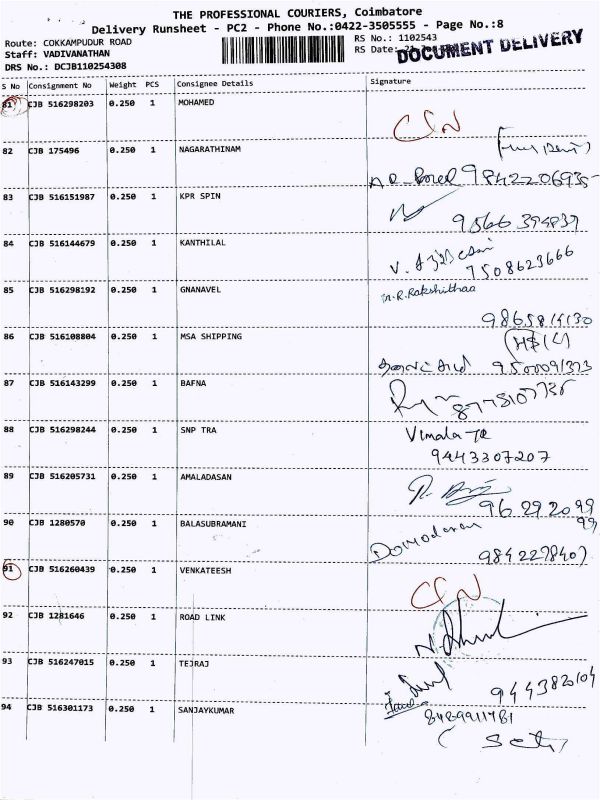 THE PROFESSIONAL COURIERS, Coimbatore
Delivery Runsheet - PC2 - Phone No.:0422-3505555 - Page No.:8
Route: COKKAMPUDUR ROAD RS No.: 1102543
Staff: VADIVANATHAN RS Date:
DRS No.: DCJB110254308 DOCUMENT DELIVERY
S No Consignment No Weight PCS Consignee Details Signature
81 CJB 516298203 0.250 1 MOHAMED
82 CJB 175496 0.250 1 NAGARATHINAM
9842206935
83 CJB 516151987 0.250 1 KPR SPIN
9566394837
84 CJB 516144679 0.250 1 KANTHILAL
7508623666
85 CJB 516298192 0.250 1 GNANAVEL m.R.Rakshithaa
9865814130
86 CJB 516108804 0.250 1 MSA SHIPPING
9500091373
87 CJB 516143299 0.250 1 BAFNA
88 CJB 516298244 0.250 1 SNP TRA Vimala
9443307207
89 CJB 516205731 0.250 1 AMALADASAN
96 292099
99
90 CJB 1280570 0.250 1 BALASUBRAMANI Damodaran
9842278407
91 CJB 516260439 0.250 1 VENKATEESH
92 CJB 1281646 0.250 1 ROAD LINK
93 CJB 516247015 0.250 1 TEJRAJ
9443820104
94 CJB 516301173 0.250 1 SANJAYKUMAR 8489911781